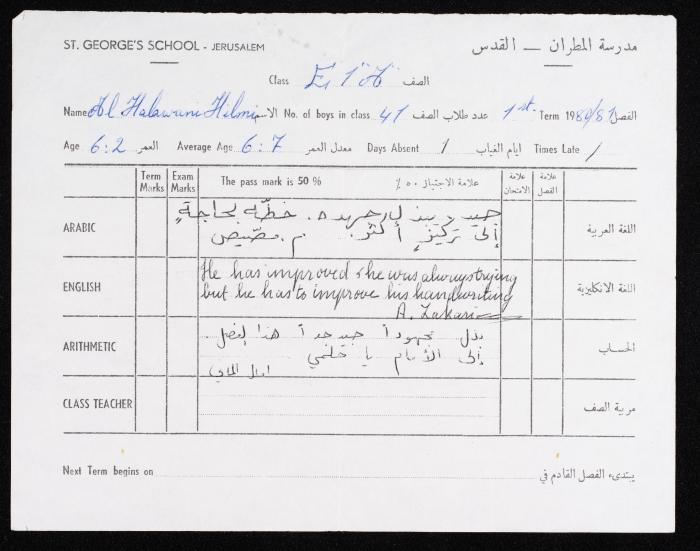 ST. GEORGE'S SCHOOL - JERUSALEM مدرسة المطران — القدس
Class El 1 "A" الصف
Name Al Halawani Hilmi الاسم No. of boys in class 41 عدد طلاب الصف 1st Term 1980/81 الفصل
Age 6:2 العمر Average Age 6:7 معدل العمر Days Absent 1 ايام الغياب Times Late /
Term Marks Exam Marks The pass mark is 50 % علامة الاجتياز ٥٠ ٪ علامة الامتحان علامة الفصل
ARABIC جيد ويبذل جهده. خطه بحاجةٍ اللغة العربية
إلى تركيزٍ أكثر.
ENGLISH He has improved & he was always trying اللغة الانكليزية
but he has to improve his handwriting
A. Zakaria
ARITHMETIC بذل مجهوداً جيد جداً هذا الفصل الحساب
إلى الأمام يا حلمي
CLASS TEACHER مربية الصف
Next Term begins on يبتدىء الفصل القادم في